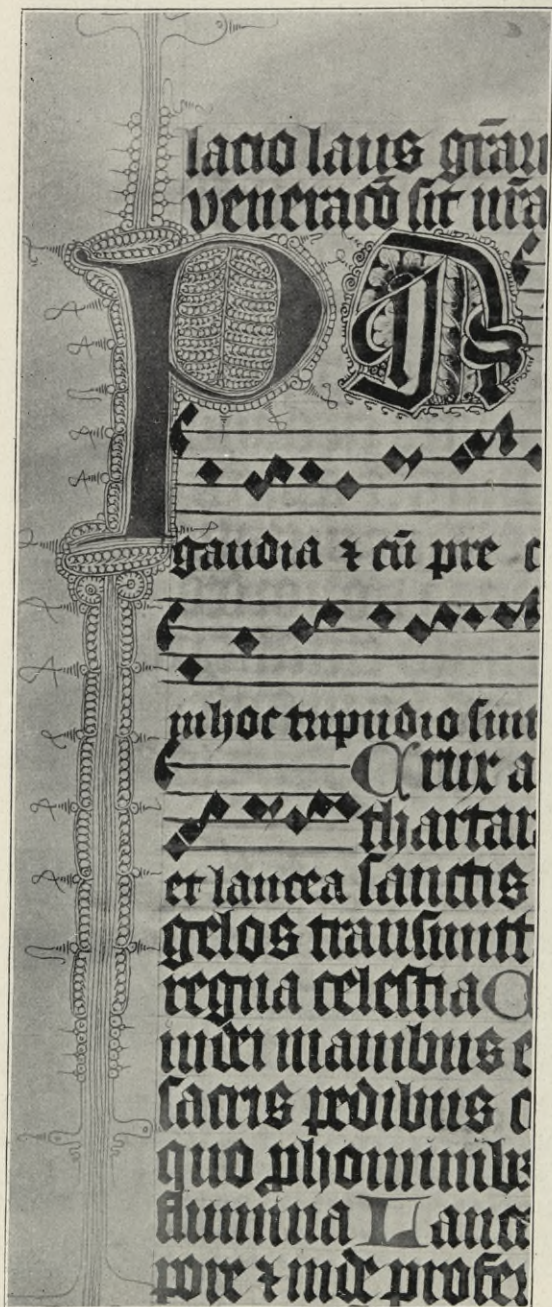 lacio laus grãu
veneracõ sit nr̃a
P A
gaudia ⁊ cũ pre c
in hoc tripudio sint
Crux a
thartar
et lancea sanctis
gelos transmitt
regna celestia C
iudei manibus e
sacris pedibus c
quo p hominibꝰ
flumina Lance
pore ⁊ inde profer